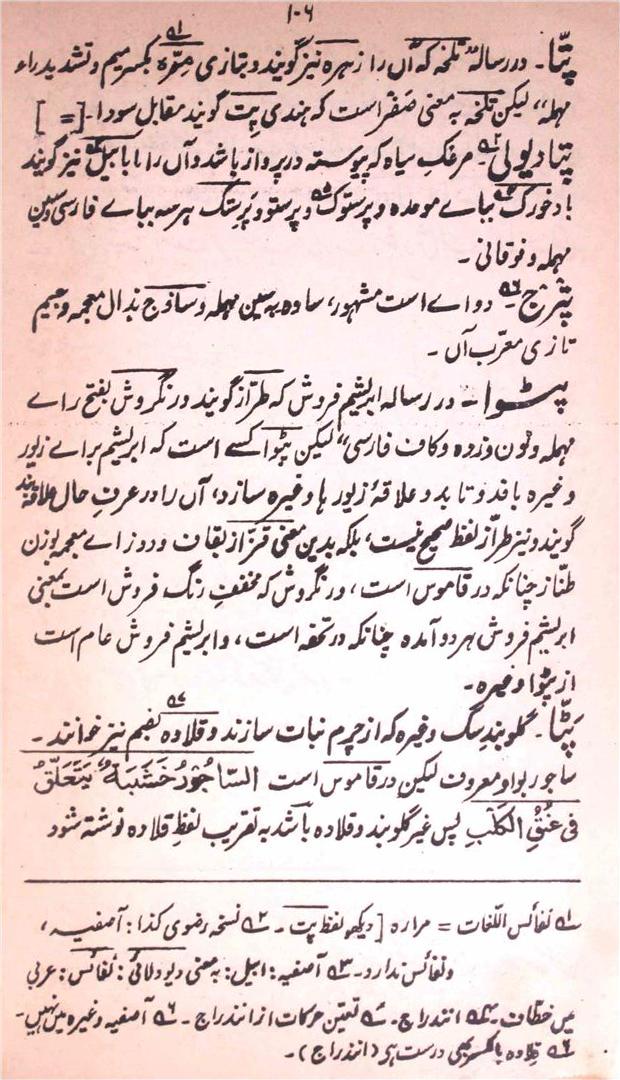 ۱۰۶
پِتّا۔ در رسالہ” تلخہ کہ آں را زہرہ نیز گویند و بتازی مِرّہ بکسر میم و تشدید راء
مہملہ“، لیکن تلخہ بہ معنی صفر است کہ ہندی پِت گویند مقابل سودا۔ [=]
پتا دیولی۔ مرغکِ سیاہ کہ پیوستہ در پرواز باشد و آں را ابابیل نیز گویند
بادخورک ببائے موحدہ و پرستوک و پرستو و پَرستگ ہر سہ بباے فارسی و سین
مہملہ و فوقانی۔
پترج۔ دواے است مشہور، سادہ بہ سین مہملہ و ساذج بذال معجمہ و جیم
تازی معرب آں۔
پٹوا۔ در رسالہ ابریشم فروش کہ طرّاز گویند و رنگروش بفتح راے
مہملہ و نون و زدہ و کاف فارسی“ لیکن پٹوا کسے است کہ ابریشم براے زیور
وغیرہ بافد و تابد و علاقۂ زیور ہا وغیرہ سازد، آں را در عرفِ حال علاقہ بند
گویند و نیز طرّاز لفظ صحیح نیست، بلکہ بدین معنی قزّاز بقاف و دو زاے معجمہ بوزن
طنّاز چنانکہ در قاموس است، و رنگروش کہ مخففِ رنگ فروش است بمعنی
ابریشم فروش ہر دو آمدہ چنانکہ در تحفہ است، و ابریشم فروش عام است
از پٹوا وغیرہ۔
پَٹّا۔ گلوبندِ سگ وغیرہ کہ از چرم نبات سازند و قلادہ بضم نیز خوانند۔
ساجور بواو معروف لیکن در قاموس است السَّاجُوْرُ خَشَبَةٌ یَتَعَلَّقُ
فی عُنُقِ الکَلْبِ پس غیر گلوبند و قلادہ باشد بہ تقریب لفظِ قلادہ نوشتہ شود
۱ نفائس اللّغات = مرارہ [دیکھو لفظ پت۔ ۲ نسخہ رضوی کذا: آصفیہ،
و نفائس ندارد۔ ۳ آصفیہ: ابیل: بہ معنی دیودلائی: نفائس: عربی
میں خطّاف۔ ۴ انندراج۔ ۵ تعین حرکات از انندراج۔ ۶ آصفیہ وغیرہ میں نہیں۔
۶ قلادہ بالکسر بھی درست ہر (انندراج)۔